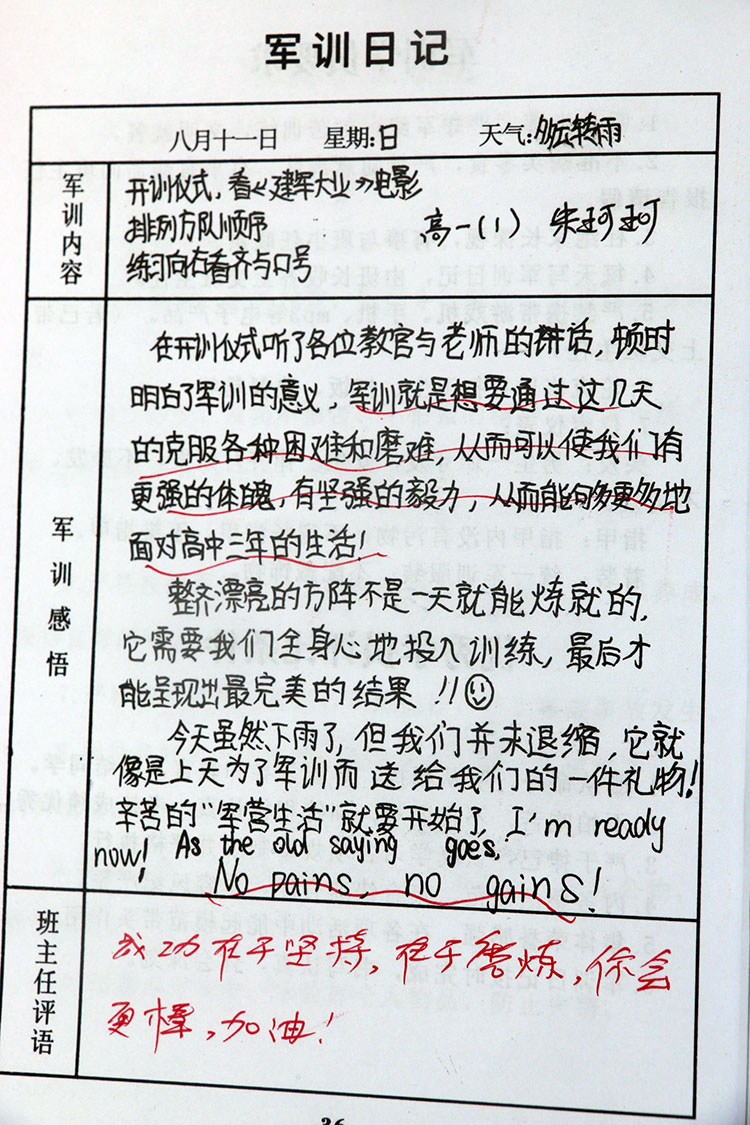 军训日记
八月十一日 星期:日 天气:多云转雨
军训内容
开训仪式,看《建辉大业》电影
排列方队顺序
高一(1) 朱珂珂
练习向右看齐与口号
军训感悟
在开训仪式听了各位教官与老师的讲话,顿时
明白了军训的意义,军训就是想要通过这几天
的克服各种困难和磨难,从而可以使我们有
更强的体魄,有坚强的毅力,从而能够更多地
面对高中三年的生活!
整齐漂亮的方阵不是一天就能炼就的,
它需要我们全身心地投入训练,最后才
能呈现出最完美的结果!!
今天虽然下雨了,但我们并未退缩,它就
像是上天为了军训而送给我们的一件礼物!
辛苦的“军营生活”就要开始了,I'm ready
now! As the old saying goes,
No pains, no gains!
班主任评语
成功在于坚持,在于磨炼,你会
更棒,加油!